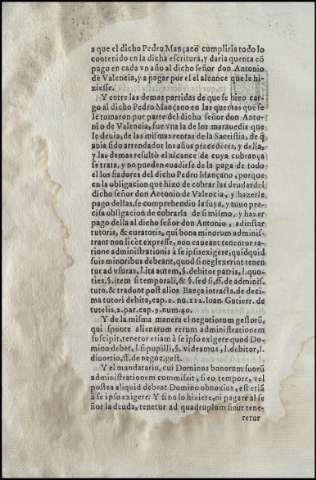 a que el dicho Pedro Mançano cumpliria todo lo
contenido en la dicha escritura, y daria quenta cõ
pago en cada vn año al dicho señor don Antonio
de Valencia, y a pagar por el el alcance que le hi-
ziesse.
Y entre las demas partidas de que se hizo car-
go al dicho Pedro Mançano en las quentas que se
le tomaron por parte del dicho señor don Anto-
nio de Valencia, fue vna la de los marauedis que
le deuia, de las mismas rentas de la Sacristia, de q̃
auia sido arrendador los años precedẽtes, y della,
y las demas resultò el alcance de cuya cobrança
se trata, y no pueden euadirse de la paga de todo
el los fiadores del dicho Pedro Mançano, porque
en la obligacion que hizo de cobrar las deudas del
dicho señor don Antonio de Valencia, y hazerle
pago dellas, se comprehendio la suya, y tuuo pre-
cisa obligacion de cobrarla de si mismo, y hazer
pago della al dicho señor don Antonio, ad instar
tutoris, & curatoris, qui bona minorum adminis-
trant non licet expresse, non caueant tenentur ra-
tione administrationis à se ipsis exigere, quidquid
suis minoribus debeant, quod si neglexerint tenen-
tur ad vsuras,
l. quo-
ties, §. item si temporali, & §. sed si, ff. de adminis-
tut. & tradunt post alios Baeça in tracta. de deci-
ma tutori debita, cap. 2. nu. 122. Ioan. Gutierr. de
tutelis, 2. par. cap. 3. num. 40.
Y de la misma manera el negotiorum gestorũ,
qui sponte alienarum rerum administrationem
suscipit, tenetur etiam à se ipso exigere quod Do-
mino debet, l. si pupilli, §. videamus, l. debitor, l.
diuortio, ff. de negot. gest.
Y el mandatario, cui Dominus bonorum suorũ
administrationem commissit, si eo tempore, vel
postea aliquid debeat Domino obnoxius, est etiã
à se ipso exigere: Y si no lo hiziere, ni pagare al se-
ñor la deuda, tenetur ad quadruplum sicut tene-
retur